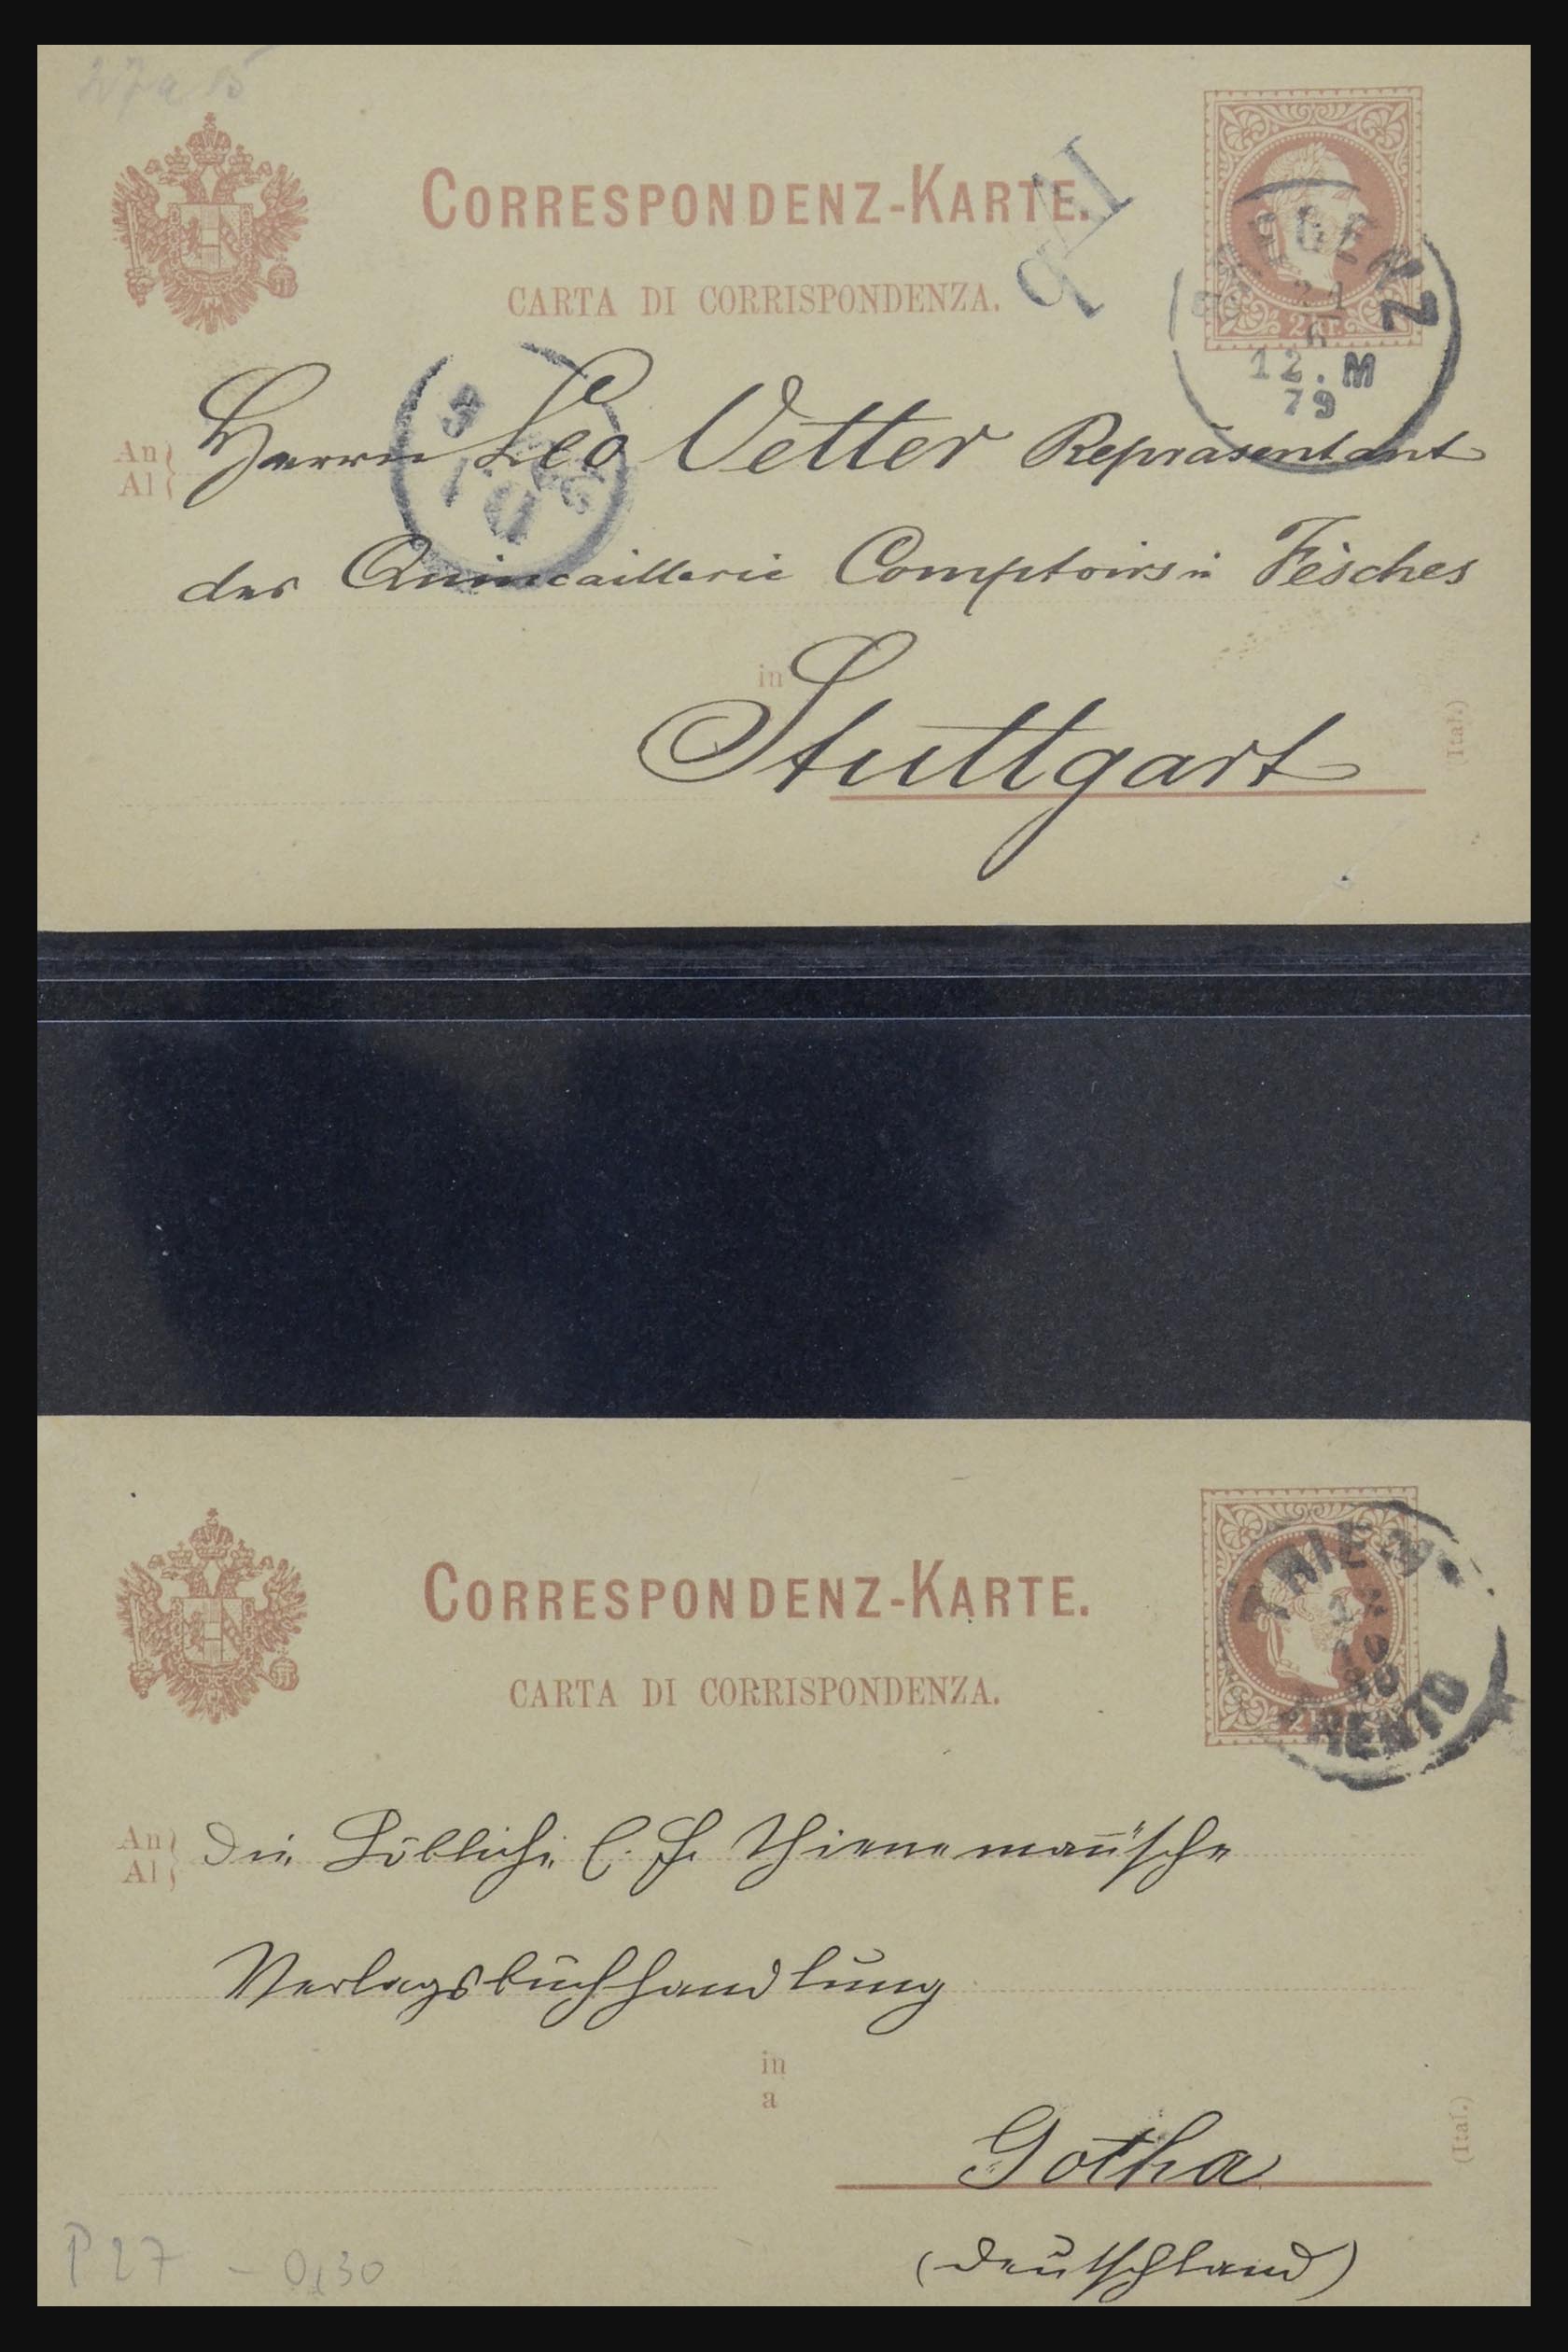 27a 15
CORRESPONDENZ-KARTE.
CARTA DI CORRISPONDENZA.
2 kr.
12. M
79
An
Al
Herrn Leo Vetter Repräsentant
des Quincaillerie Comptoirs in Fesches
in
Stuttgart
(Ital.)
CORRESPONDENZ-KARTE.
CARTA DI CORRISPONDENZA.
TRIENT
TRENTO
An
Al
Die Löbliche C. F. Thienemañ'sche
Verlagsbuchhandlung
in
a
Gotha
(Ital.)
(Deutschland)
P 27 - 0,30